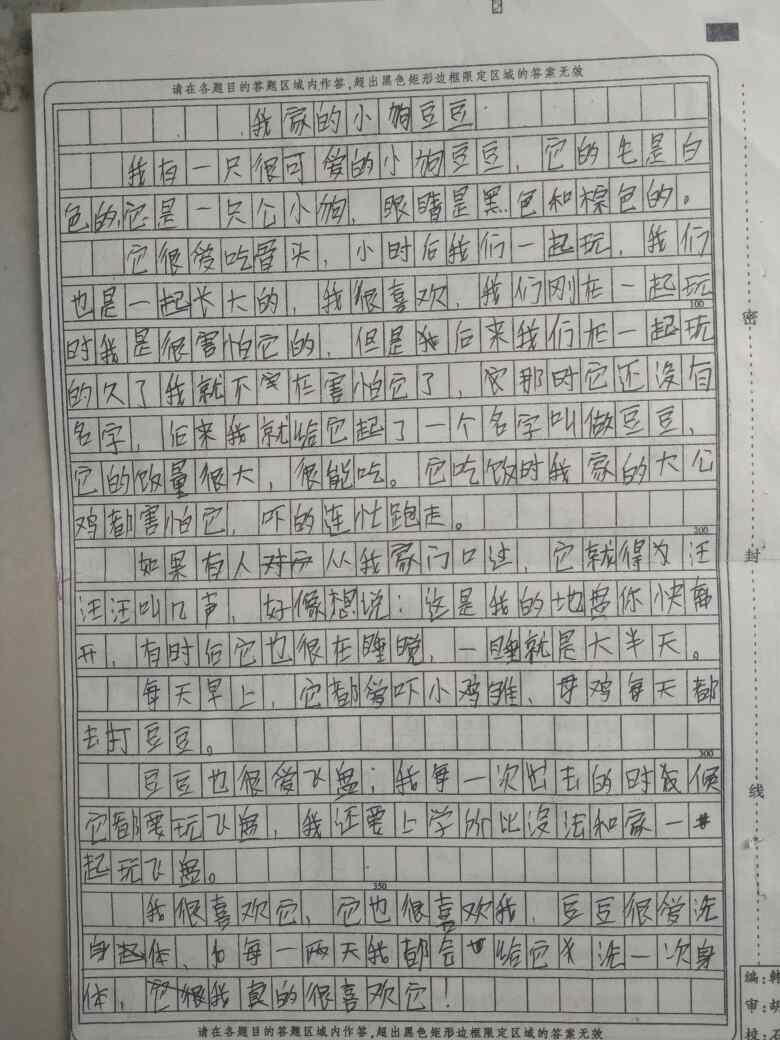 请在各题目的答题区域内作答,超出黑色矩形边框限定区域的答案无效
我家的小狗豆豆
我有一只很可爱的小狗豆豆，它的毛是白
色的,它是一只公小狗，眼睛是黑色和棕色的。
它很爱吃骨头，小时后我们一起玩，我们
也是一起长大的，我很喜欢，我们刚在一起玩
100
时我是很害怕它的，但是后来我们在一起玩
的久了我就不害怕它了，那时它还没有
名字，后来我就给它起了一个名字叫做豆豆，
它的饭量很大，很能吃。它吃饭时我家的大公
鸡都害怕它，吓的连忙跑走。
200
如果有人从我家门口过，它就得为汪
汪汪叫几声，好像想说：这是我的地盘你快离
开，有时后它也很在睡晚，一睡就是大半天。
每天早上，它都爱吓小鸡雏、母鸡每天都
去打豆豆。
300
豆豆也很爱飞盘；我每一次出去的时候
它都要玩飞盘，我还要上学所比没法和家一
起玩飞盘。
350
我很喜欢它，它也很喜欢我，豆豆很爱洗
身体，每一两天我都会给它洗一次身
体，我真的很喜欢它！
请在各题目的答题区域内作答,超出黑色矩形边框限定区域的答案无效
密
封
线
编:韩
审:胡
校:石